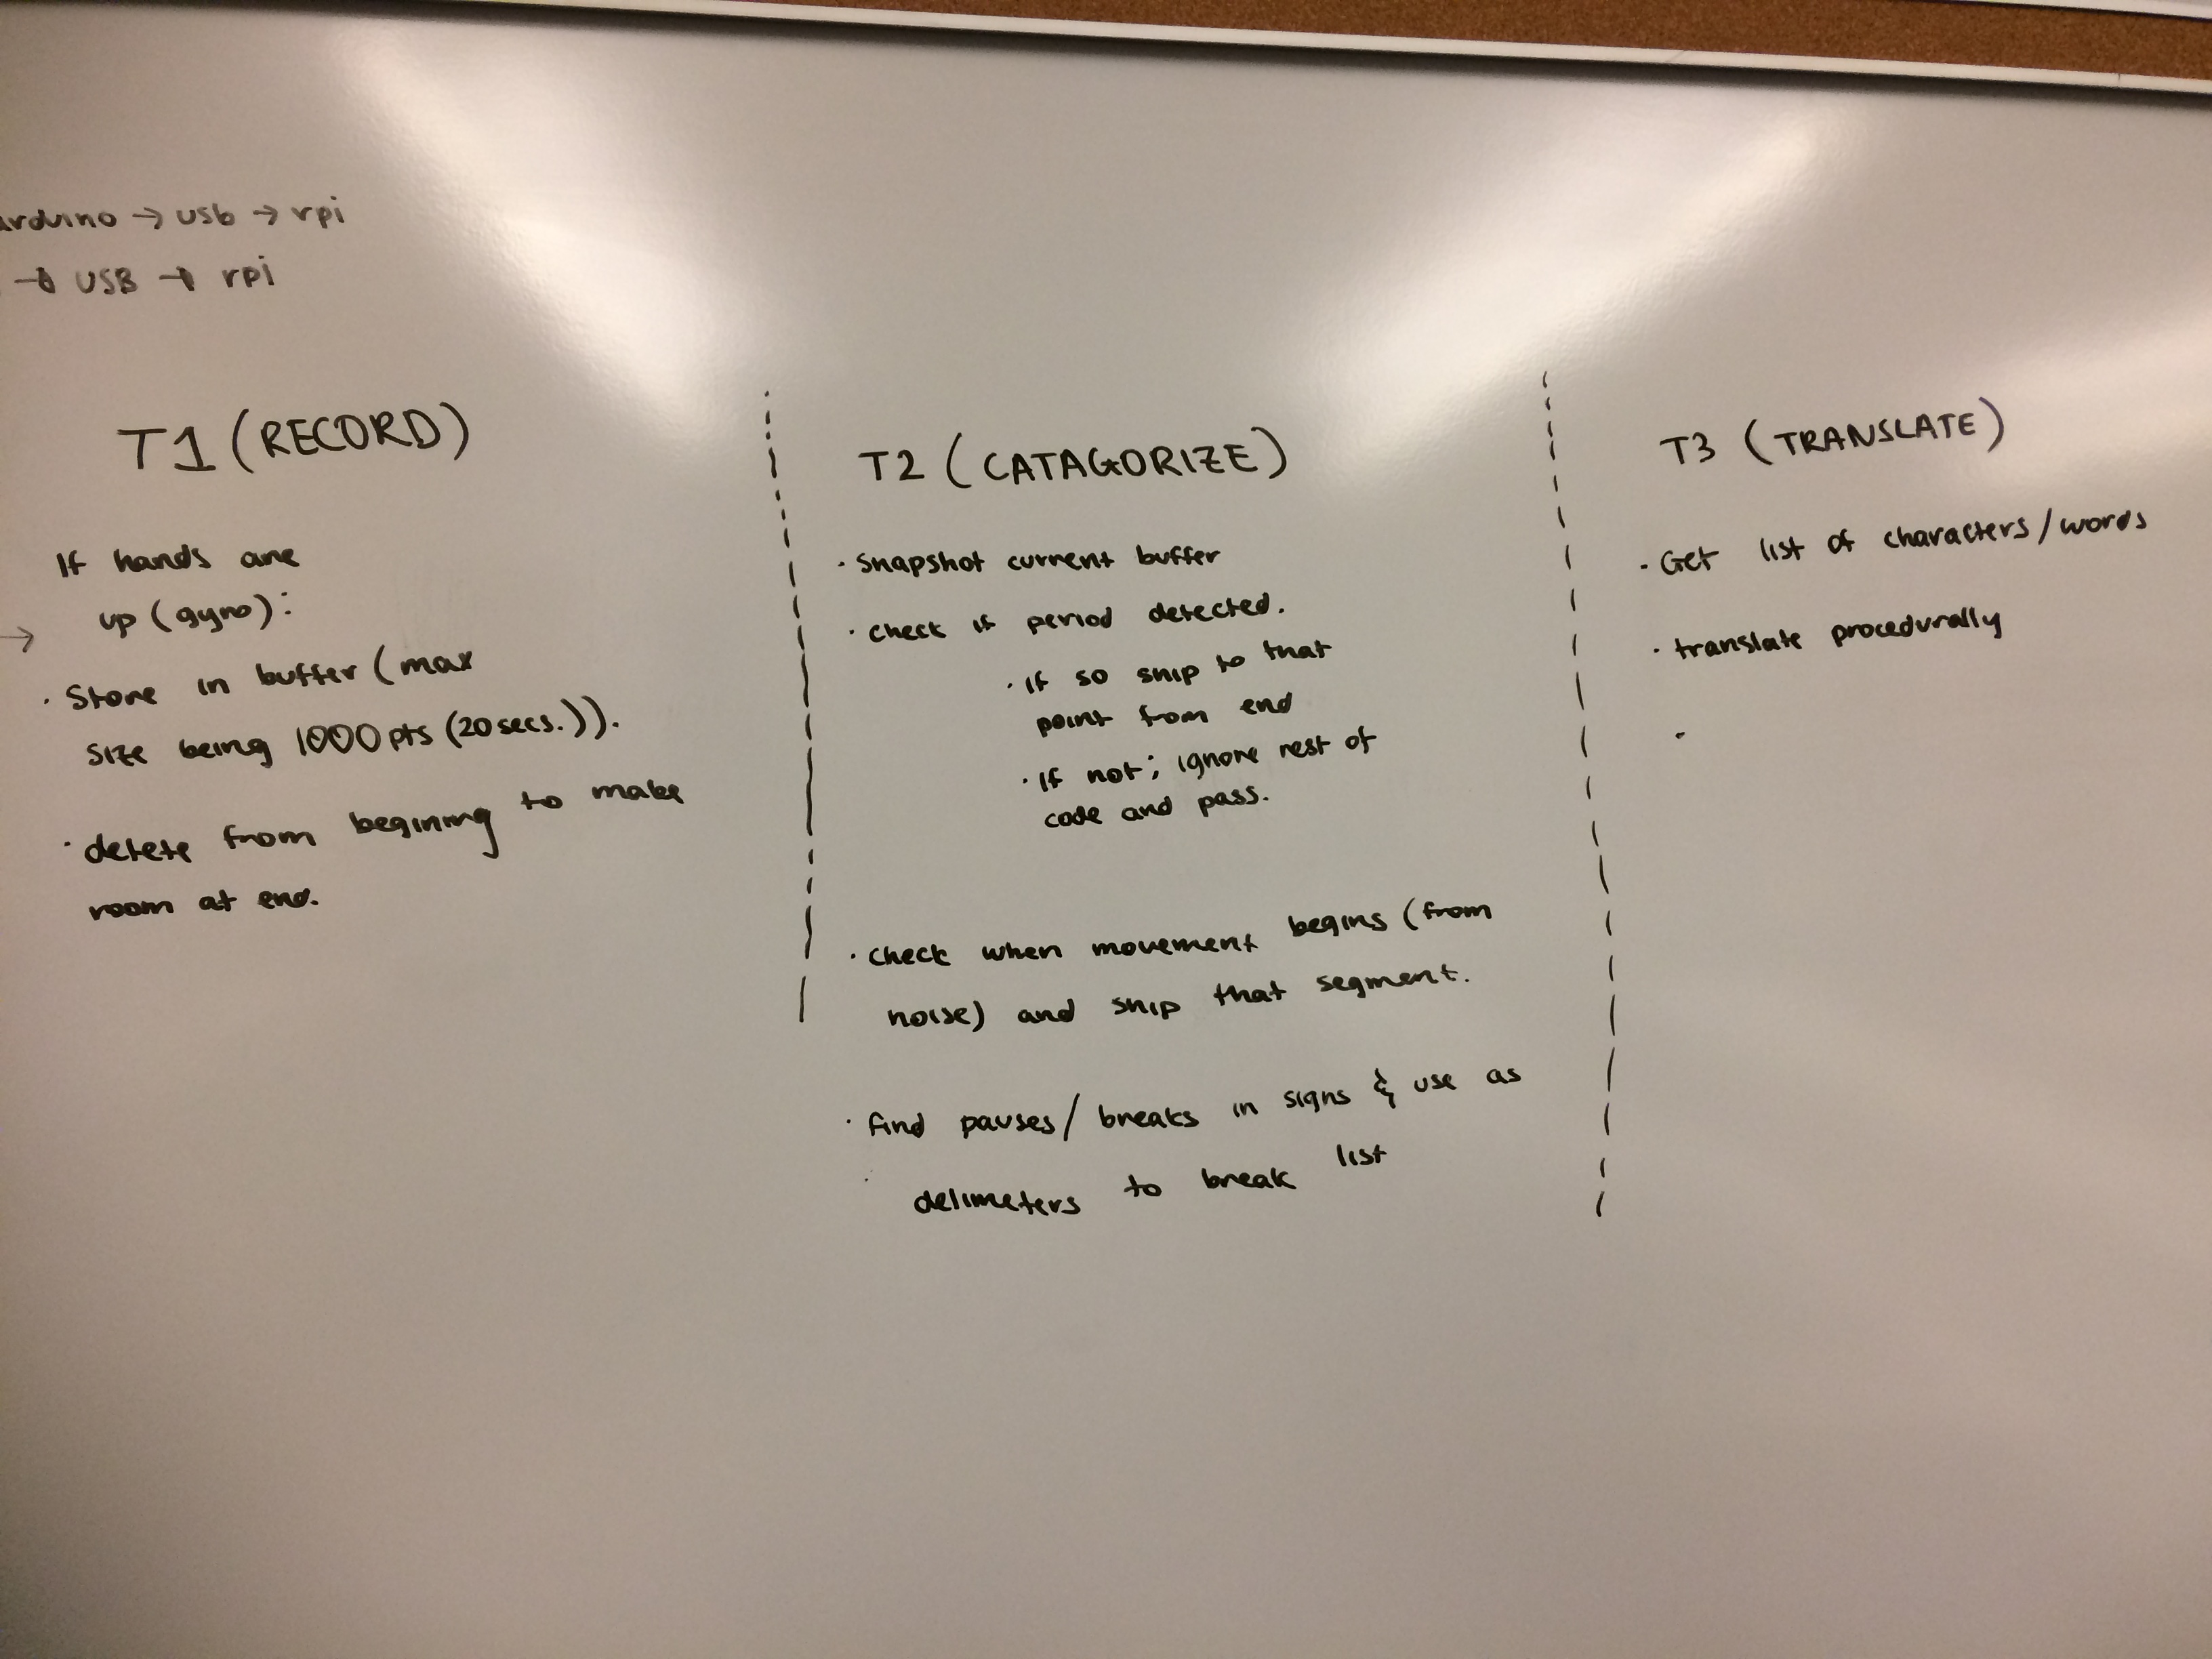 arduino → usb → rpi
→ USB → rpi
T1 (RECORD)
If hands are
up (gyro):
→
· Store in buffer (max
size being 1000 pts (20 secs.)).
· delete from begining to make
room at end.
T2 (CATAGORIZE)
· Snapshot current buffer
· check if period detected.
· If so snip to that
point from end
· If not; ignore rest of
code and pass.
· check when movement begins (from
noise) and snip that segment.
· find pauses/breaks in signs & use as
delimeters to break list
T3 (TRANSLATE)
· Get list of characters/words
· translate procedurally
·